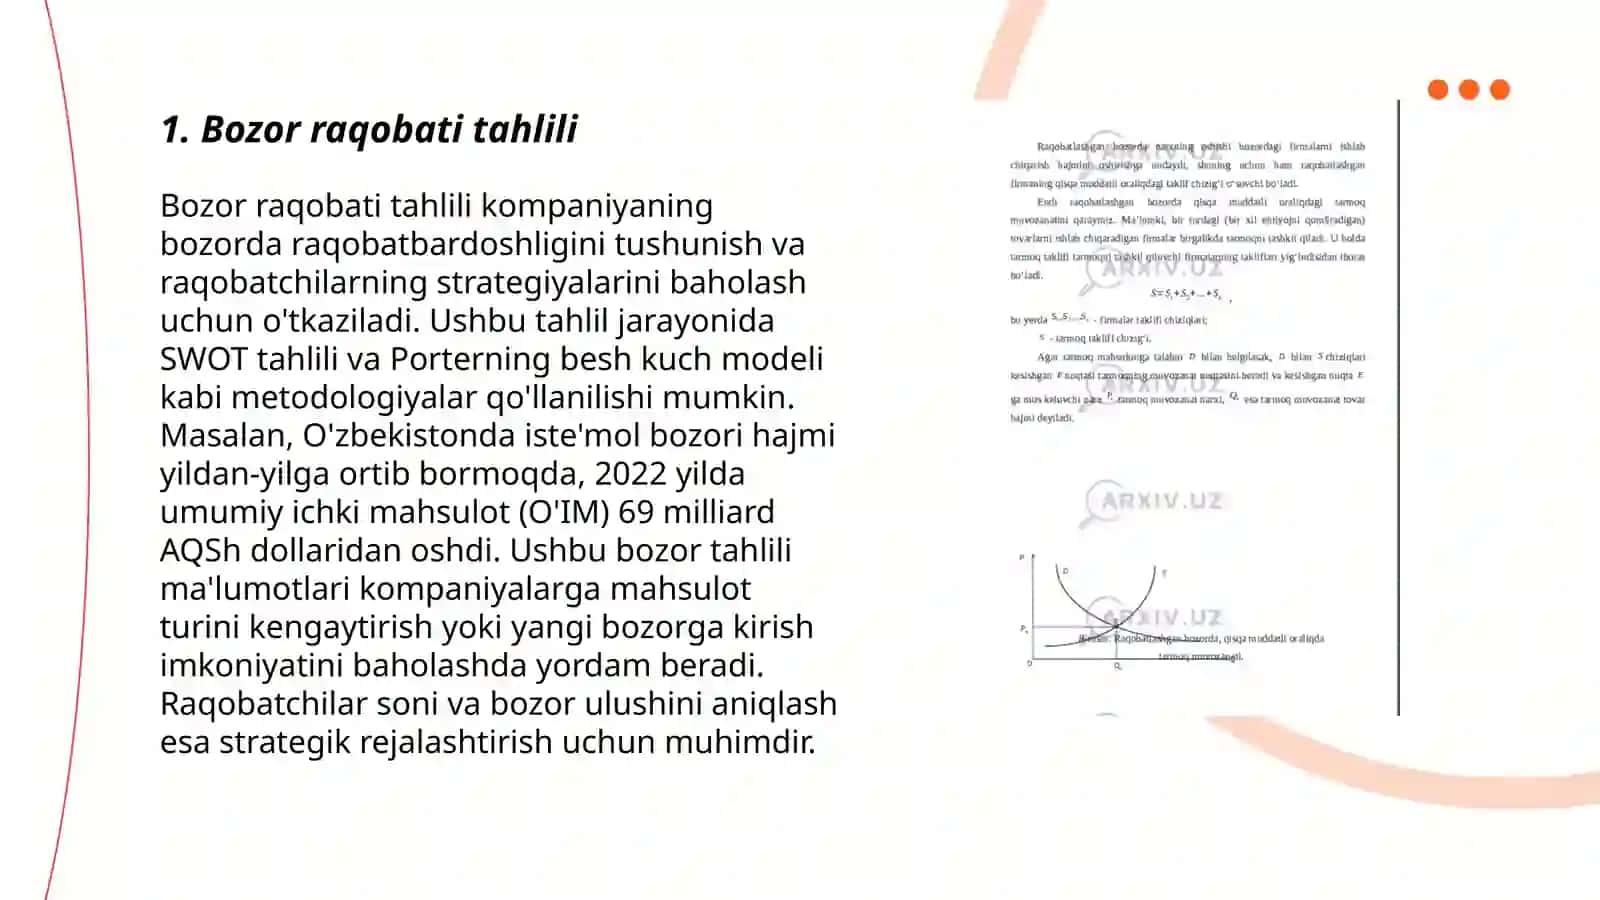 1. Bozor raqobati tahlili
Bozor raqobati tahlili kompaniyaning
bozorda raqobatbardoshligini tushunish va
raqobatchilarning strategiyalarini baholash
uchun o'tkaziladi. Ushbu tahlil jarayonida
SWOT tahlili va Porterning besh kuch modeli
kabi metodologiyalar qo'llanilishi mumkin.
Masalan, O'zbekistonda iste'mol bozori hajmi
yildan-yilga ortib bormoqda, 2022 yilda
umumiy ichki mahsulot (O'IM) 69 milliard
AQSh dollaridan oshdi. Ushbu bozor tahlili
ma'lumotlari kompaniyalarga mahsulot
turini kengaytirish yoki yangi bozorga kirish
imkoniyatini baholashda yordam beradi.
Raqobatchilar soni va bozor ulushini aniqlash
esa strategik rejalashtirish uchun muhimdir.
Raqobatlashgan bozorda narxning oshishi bozordagi firmalarni ishlab
chiqarish hajmini oshirishga undaydi, shuning uchun ham raqobatlashgan
firmaning qisqa muddatli oraliqdagi taklif chizig'i o'suvchi bo'ladi.
Endi raqobatlashgan bozorda qisqa muddatli oraliqdagi tarmoq
muvozanatini qaraymiz. Ma'lumki, bir turdagi (bir xil ehtiyojni qondiradigan)
tovarlarni ishlab chiqaradigan firmalar birgalikda tarmoqni tashkil qiladi. U holda
tarmoq taklifi tarmoqni tashkil qiluvchi firmalarning takliflari yig'indisidan iborat
bo'ladi.
bu yerda - firmalar taklifi chiziqlari;
S - tarmoq taklifi chizig'i.
Agar tarmoq mahsulotiga talabni D bilan belgilasak, D bilan S chiziqlari
kesishgan E nuqtasi tarmoqning muvozanat nuqtasini beradi va kesishgan nuqta E
ga mos keluvchi narx tarmoq muvozanat narxi, esa tarmoq muvozanat tovar
hajmi deyiladi.
ARXIV.UZ
ARXIV.UZ
ARXIV.UZ
ARXIV.UZ
ARXIV.UZ
P
D
Raqobatlashgan bozorda, qisqa muddatli oraliqda
tarmoq muvozanati.